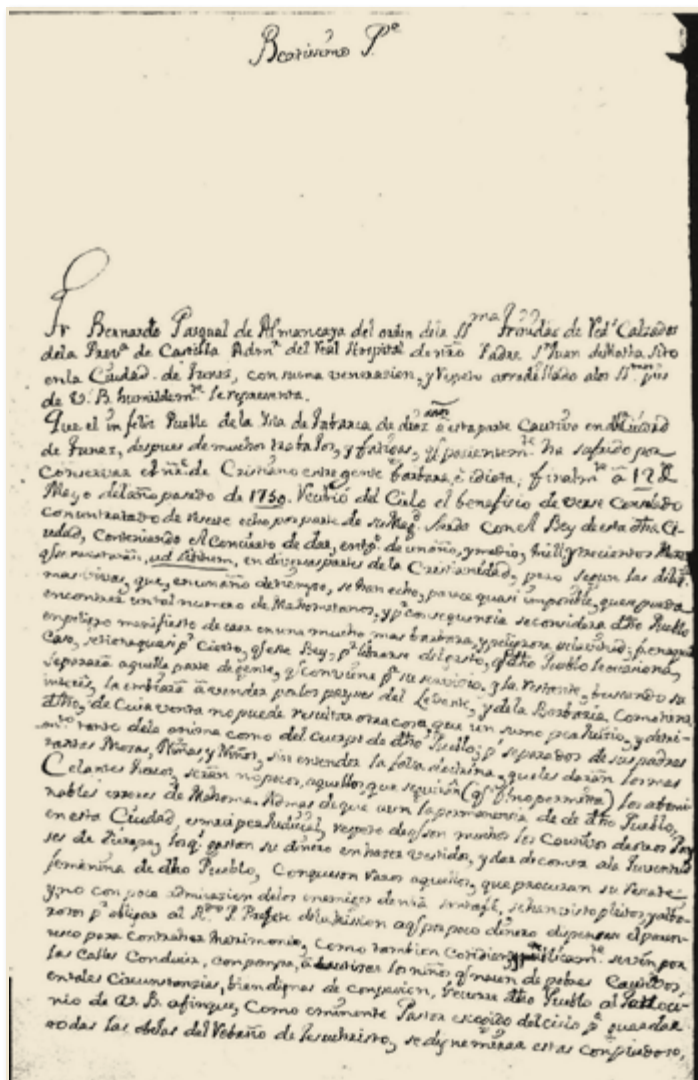 Beatissimo P.e
Fr Bernardo Pasqual de Almanzaya del orden dela SS.ma Trinidad de Red.s Calzados
dela Prov.a de Castilla Adm.r del Real Hospital de nro Padre S.n Juan de Matha sito
en la Ciudad de Tunez, con suma veneracion, y respeto arrodillado alos SS.mos pies
de V. B. humildem.te le representa.
Que el infeliz Pueblo de la Isla de Tabarca de diez años a esta parte Cautivo en dha Ciudad
de Tunez, despues de muchos trabajos, y fatigas, q.e pacientem.te ha sufrido por
conservar el nre. de Cristiano entre gente barbara, è idiota; finalm.te à 12 de
Mayo del año pasado de 1750. Recivió del Cielo el beneficio de verse consolado
con un tratado de rescate echo por parte de su Mag. Sarda con el Bey de esta dha Ci-
udad, Conteniendo el Concierto de dar, en tp.o de un año, y medio, mill y trecientos
q.e se rescataràn, ad libitum, en diversas partes de la Cristianidad, pero segun las dilig.
mas vivas, que, en un año de tiempo, se han echo, parece quasi imposible, que se pueda
encontrar un tal numero de Mahometanos, y p.r consequencia se considera dho Pueblo
en peligro manifiesto de caer en una mucho mas barbara, y peligrosa esclavitud;
caso, se tiene quasi p.r Cierto, q.e este Bey, p.r librarse del gasto, q.e dho Pueblo le occasiona,
separarà aquella parte de gente, q.e conviene p.a su servicio, y la restante, buscando su
interès, la embiarà à vender por los payses del Levante, y de la Barbaria
dho, de Cuia venta no puede resultar otra cosa, que un sumo perjuicio, y detri-
mento tanto dela anima como del cuerpo de dho Pueblo; p.s separados de sus padres
tantas Mozas, Niñas y Niños, sin entender la falsa doctrina, que les daràn los mas
Celantes Turcos, seràn no pocos, aquellos que seguiràn (q.e D.s no permita) los abomi-
nables errores de Mahoma. Ademas de que vera la permanencia de dho Pueblo,
en esta Ciudad es mui perjudicial, respeto de q.e son muchos los Cautivos de otros Pay-
ses de Europa, los q.e gastan su dinero en hacer vestidos, y dar de comer ala Juventud
femenina de dho Pueblo, Conque son raros aquellos, que procuran su rescate
y no con poca admiracion delos enemigos de nra santa fe, se han visto pleitos, y albo-
rotos p.a obligar al R.mo P. Prefeto dela Mission a q.e por poco dinero dispense el paren-
tesco para contraher Matrimonio, Como tambien publicam.te se ven por
las calles Conducir, con pompa, à bautizar los niños q.e nacen de pobres Cautivos,
en tales Circunstancias, bien dignas de compasion, recurre dho Pueblo al Patroci-
nio de V. B. afinque, Como eminente Pastor escogido del cielo p.a guardar
todas las obejas del Rebaño de Jesuchristo, se digne mirar estas con piadosos,